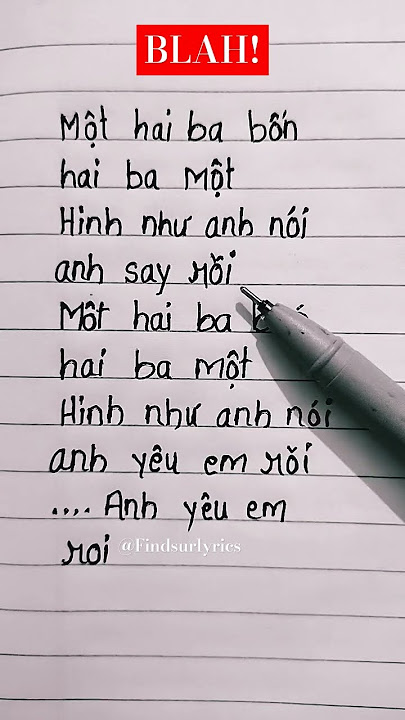 BLAH!
Một hai ba bốn
hai ba Một
Hinh như anh nói
anh say rồi
Mốt hai ba
hai ba một
Hinh như anh nói
anh yêu em rồi
.... Anh yêu em
roi @Findsurlyrics